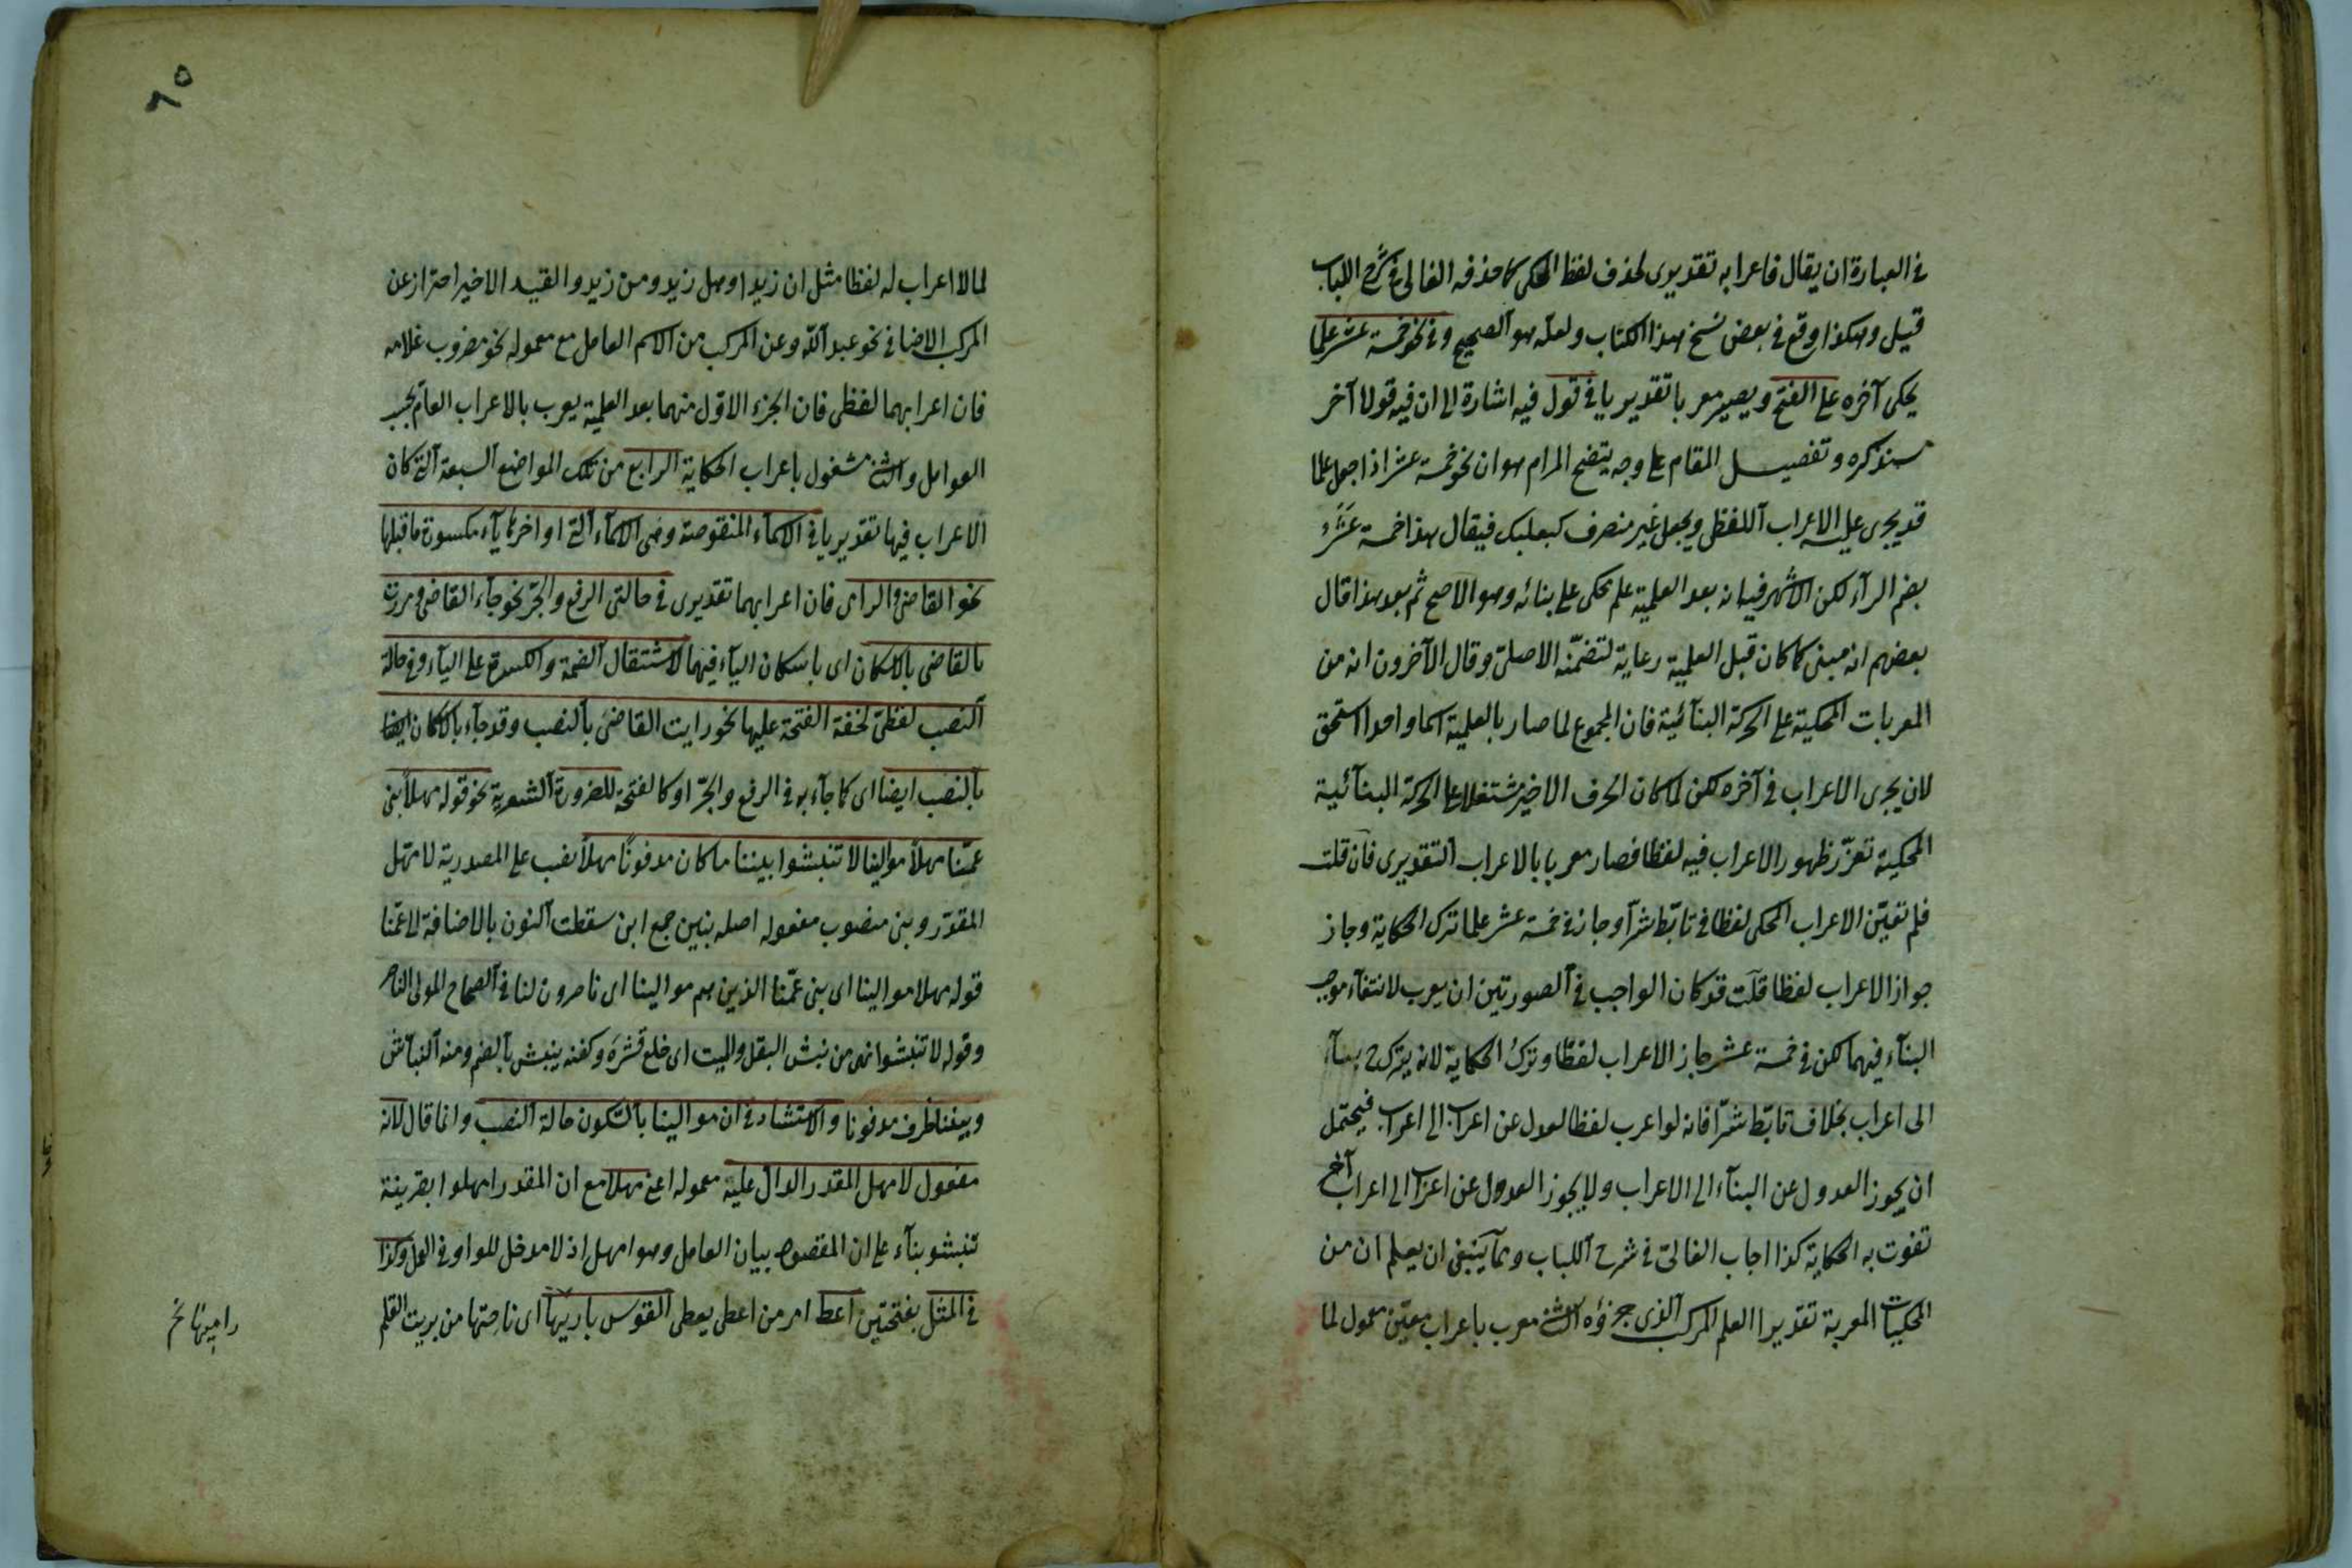 في العبارة ان يقال فاعرابه تقديرى لحذف لفظ المحكى كما حذفه الفالى في شرح اللباب
قيل وهكذا وقع في بعض نسخ هذا الكتاب ولعله هو الصحيح وفي نحو خمسة عشر علما
يحكى آخره على الفتح ويصير معربا تقديريا في قول فيه اشارة الى ان فيه قولا آخر
سنذكره وتفصيل المقام على وجه يتضح المرام هو ان نحو خمسة عشر اذا جعل علما
قد يجرى عليه الاعراب اللفظى ويجعل غير منصرف كبعلبك فيقال هذا خمسة عشَرُ
بضم الرآء لكن الاشهر فيه انه بعد العلمية علم يحكى على بنائه وهو الاصح ثم بعد هذا قال
بعضهم انه مبنى كما كان قبل العلمية رعاية لتضمّنه الاصلىّ وقال الآخرون انه من
المعربات المحكية على الحركة البنآئية فان المجموع لما صار بالعلمية اسما واحدا استحق
لان يجرى الاعراب في آخره لكن لما كان الحرف الاخير مشتغلا على الحركة البنآئية
المحكية تعزّر ظهور الاعراب فيه لفظا فصار معربا بالاعراب التقديرى فان قلت
فلم تعيّن الاعراب المحكى لفظا في تابّط شرّا وجاز في خمسة عشر علما ترك الحكاية وجاز
جواز الاعراب لفظا قلت قد كان الواجب في الصورتين ان يعرب لانتفآء موجب
البنآء فيهما لكن في خمسة عشر جاز الاعراب لفظا وترك الحكاية لانه يترك ح بنآء
الى اعراب بخلاف تابّط شرّا فانه لو اعرب لفظا لعدل عن اعراب الى اعراب فيحتمل
ان يجوز العدول عن البنآء الى الاعراب ولا يجوز العدول عن اعراب الى اعراب آخر
تفوت به الحكاية كذا اجاب الفالىّ في شرح اللباب وممآ ينبغى ان يعلم ان من
المحكيات المعربة تقديرا العلم المركب الذى جزؤه الثانى معرب باعراب معيّن معمول لما
٦٥
لما لا اعراب له لفظا مثل ان زيدا وهل زيد ومن زيد والقيد الاخير احتراز عن
المركب الاضافى نحو عبد الله وعن المركب من الاسم العامل مع معموله نحو مضروب غلامه
فان اعرابهما لفظى فان الجزء الاوّل منهما بعد العلمية يعرب بالاعراب العام بحسب
العوامل والثانى مشغول باعراب الحكاية الرابع من تلك المواضع السبعة التى كان
الاعراب فيها تقديريا في الاسمآء المنقوصة وهى الاسمآء التى اواخرها يآء مكسورة ما قبلها
نحو القاضى والرامى فان اعرابهما تقديرى في حالتى الرفع والجرّ نحو جآء القاضى ومررت
بالقاضى بالاسكان اى باسكان اليآء فيهما لاستثقال الضمة والكسرة على اليآء وفي حالة
النصب لفظىّ لخفة الفتحة عليها نحو رايت القاضىَ بالنصب وقد جآء بالاسكان ايضا
بالنصب ايضا اى كما جآء به في الرفع والجرّ او كالفتحة للضرورة الشعرية نحو قوله مهلاً بنى
عمّنا مهلاً موالينا لا تنبشوا بيننا ما كان مدفونًا مهلاً نصب على المصدرية لامهل
المقدّر وبنى منصوب مفعوله اصله بنين جمع ابن سقطت النون بالاضافة الى عمّنا
قوله مهلا موالينا اى بنى عمّنا الذين هم موالينا اى ناصرون لنا في الصحاح المولى الناصر
وقوله لا تنبشوا نهى من نبش البقل والميت اى خلع قشره وكفنه ينبش بالضم ومنه النبآش
وبيننا ظرف مدفونا والاستشهاد في ان موالينا بالسكون حالة النصب وانما قال لانه
مفعول لامهل المقدر الدال عليه معموله اعنى مهلا مع ان المقدر امهلوا بقرينة
تنبشو بنآء على ان المقصود بيان العامل وهو امهل اذ لا مدخل للواو في العمل وكذا
في المثل بفتحتين اعط امر من اعطى يعطى القوس باريْها اى ناحتها من بريت القلم